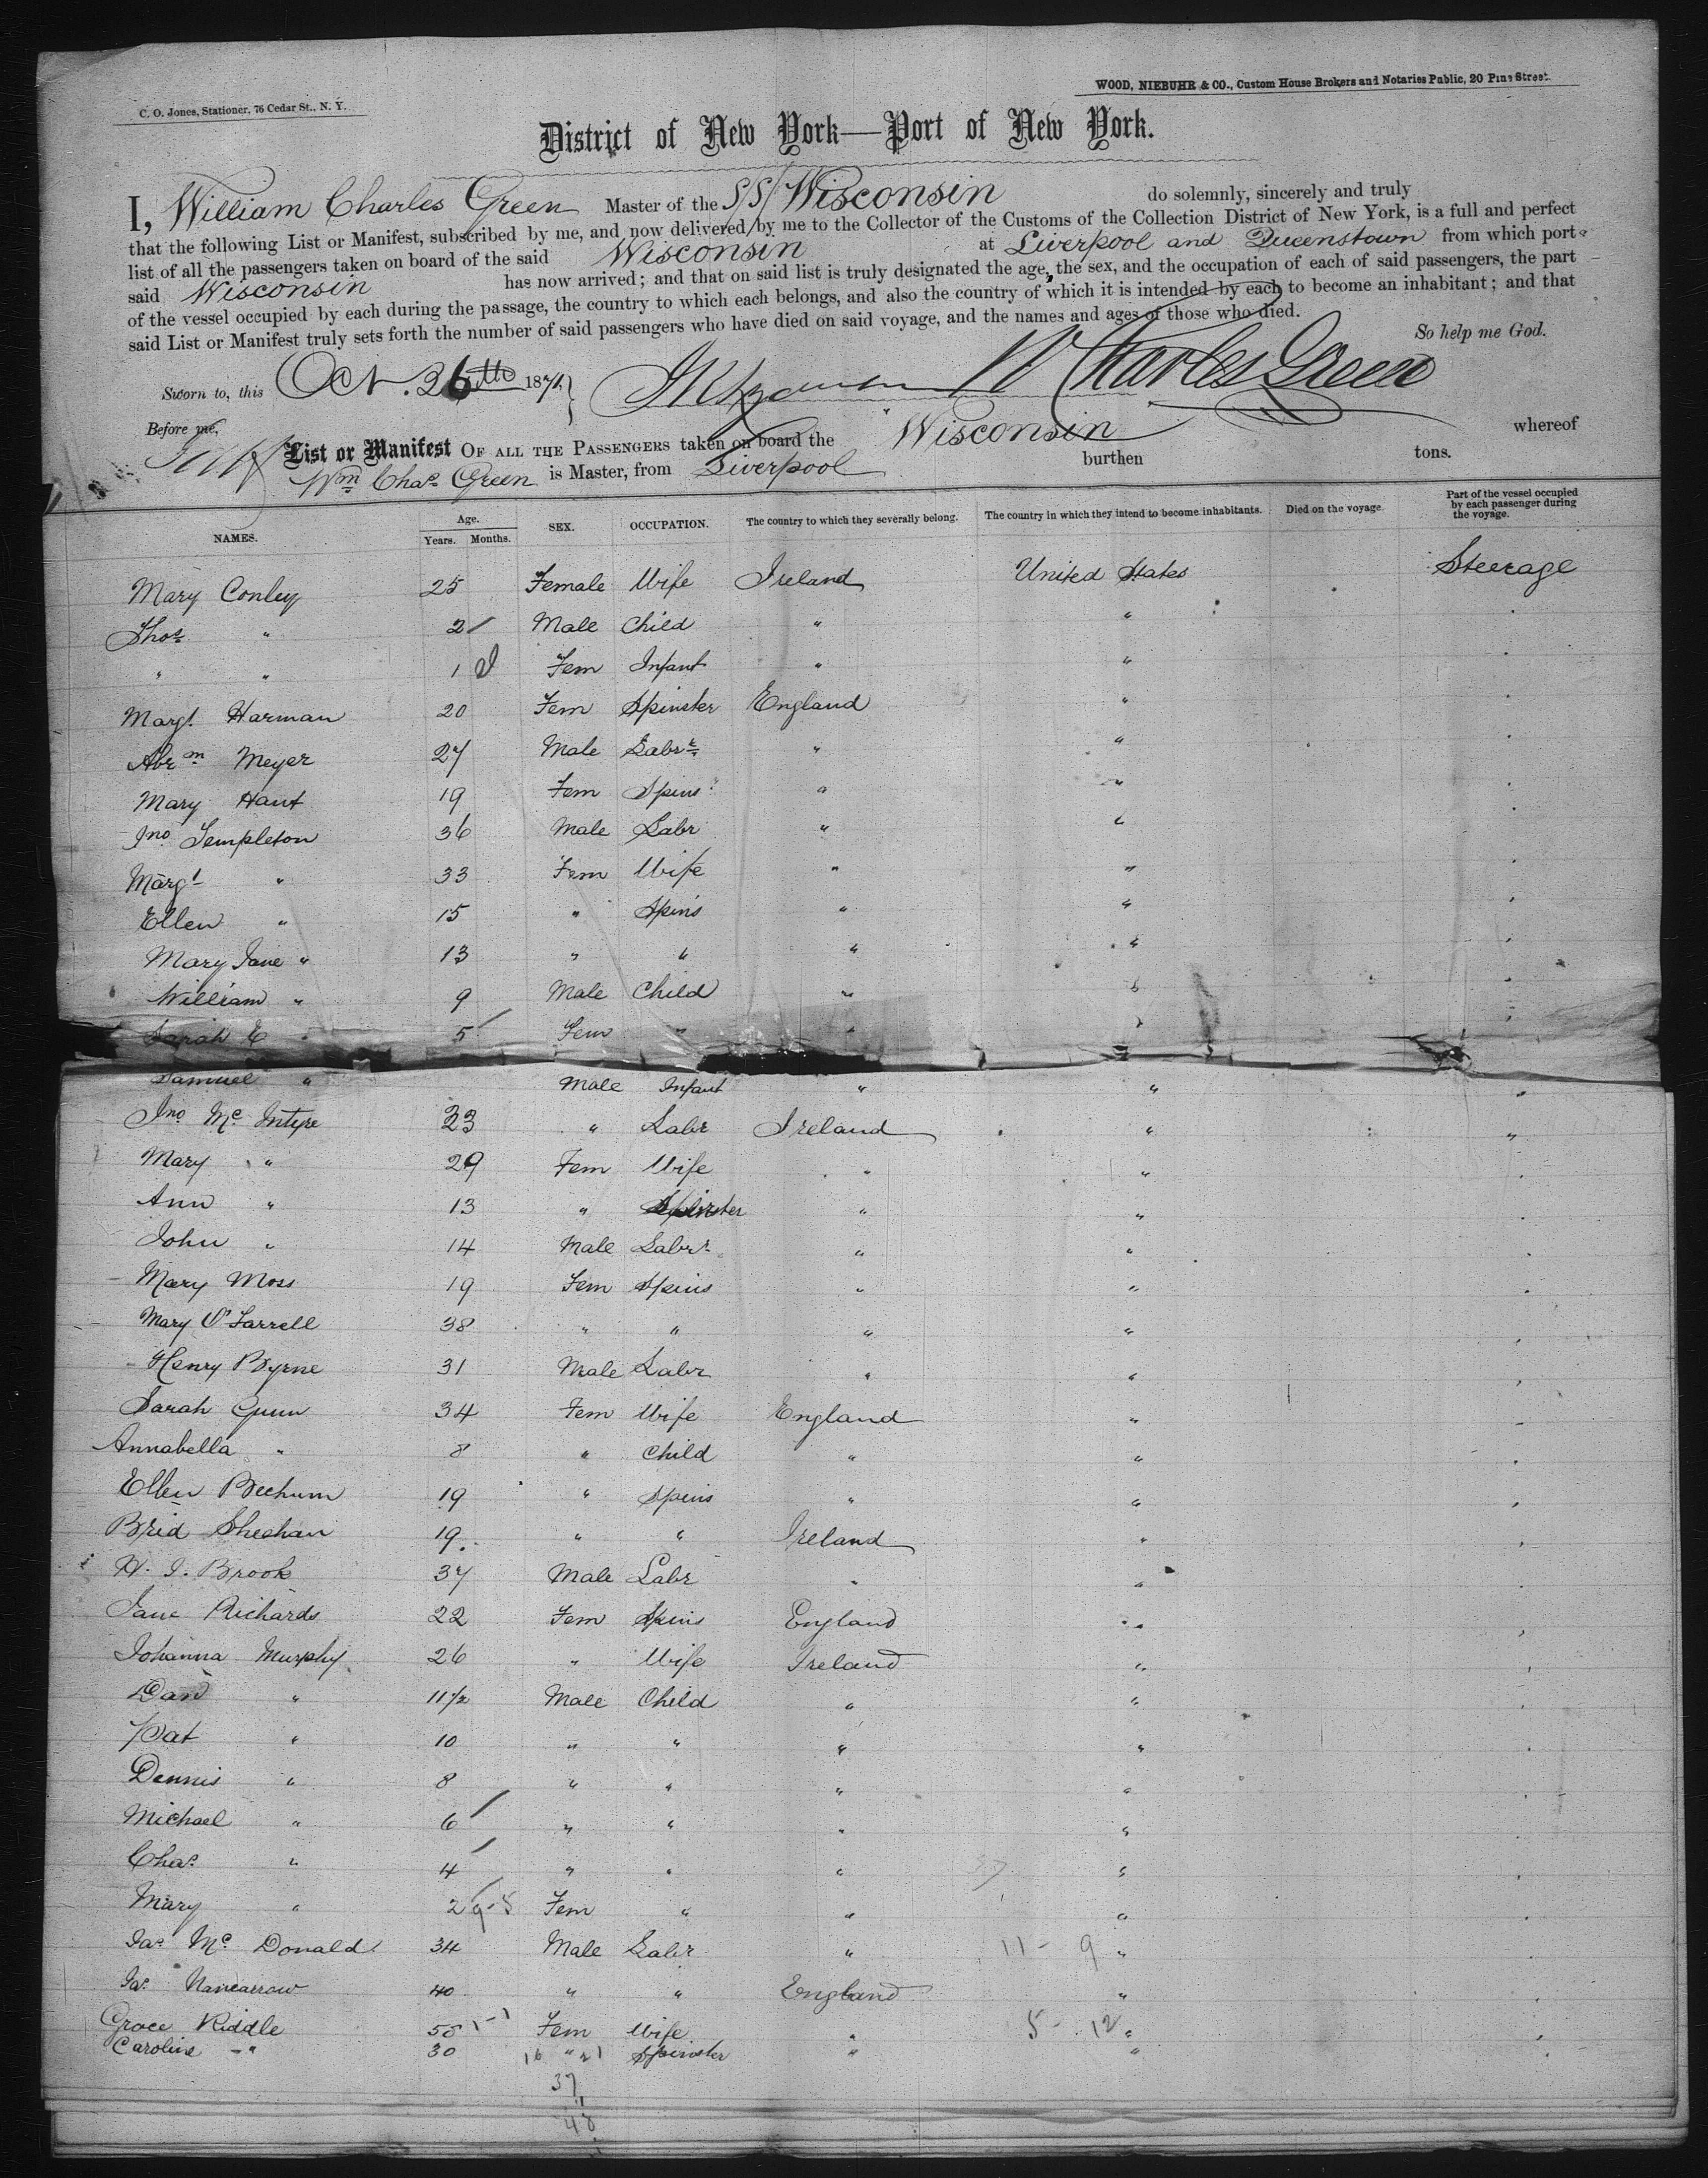 WOOD, NIEBUHR & CO., Custom House Brokers and Notaries Public, 20 Pine Street.
C. O. Jones, Stationer, 76 Cedar St., N. Y.
District of New York—Port of New York.
I, William Charles Green Master of the S/S/ Wisconsin do solemnly, sincerely and truly
that the following List or Manifest, subscribed by me, and now delivered by me to the Collector of the Customs of the Collection District of New York, is a full and perfect
list of all the passengers taken on board of the said Wisconsin at Liverpool and Queenstown from which port
said Wisconsin has now arrived; and that on said list is truly designated the age, the sex, and the occupation of each of said passengers, the part
of the vessel occupied by each during the passage, the country to which each belongs, and also the country of which it is intended by each to become an inhabitant; and that
said List or Manifest truly sets forth the number of said passengers who have died on said voyage, and the names and ages of those who died.
So help me God.
Sworn to, this Oct. 26th 1871 W Charles Green
Before me,
List or Manifest OF ALL THE PASSENGERS taken on board the Wisconsin whereof
Wm Chas Green is Master, from Liverpool burthen tons.
NAMES. Age. Years. Months. SEX. OCCUPATION. The country to which they severally belong. The country in which they intend to become inhabitants. Died on the voyage. Part of the vessel occupied by each passenger during the voyage.
Mary Conley 25 Female Wife Ireland United States Steerage
Thos " 2 Male Child " "
" " 1 Fem Infant " "
Margt. Harman 20 Fem Spinster England "
Abrm Meyer 27 Male Labrr " "
Mary Hant 19 Fem Spins " "
Jno Templeton 36 Male Labr " "
Margt " 33 Fem Wife " "
Ellen " 15 " Spins " "
Mary Jane " 13 " " " "
William " 9 Male Child " "
Sarah E " 5 Fem " " "
Samuel " Male Infant " "
Jno. Mc Intyre 33 " Labr Ireland " "
Mary " 29 Fem Wife " "
Ann " 13 " Spinster " "
John " 14 Male Labrr " "
Mary Moss 19 Fem Spins " "
Mary O'Farrell 38 " " " "
Henry Byrne 31 Male Labr " "
Sarah Gunn 34 Fem Wife England "
Annabella " 8 " Child " "
Ellen Bechum 19 " Spins " "
Brid Sheehan 19 " " Ireland "
H. J. Brook 37 Male Labr " "
Jane Richards 22 Fem Spins England "
Johanna Murphy 26 " Wife Ireland "
Dan " 11 1/2 Male Child " "
Pat " 10 " " " "
Dennis " 8 " " " "
Michael " 6 " " " "
Chas. " 4 " " " "
Mary " 2 Fem " " "
Jas Mc Donald 34 Male Labr " 11 - 9 "
Jas. Nancarrow 40 " " England "
Grace Riddle 58 1-1 Fem Wife " 5 - 12 "
Caroline " 30 16 " 21 Spinster " "
37
48